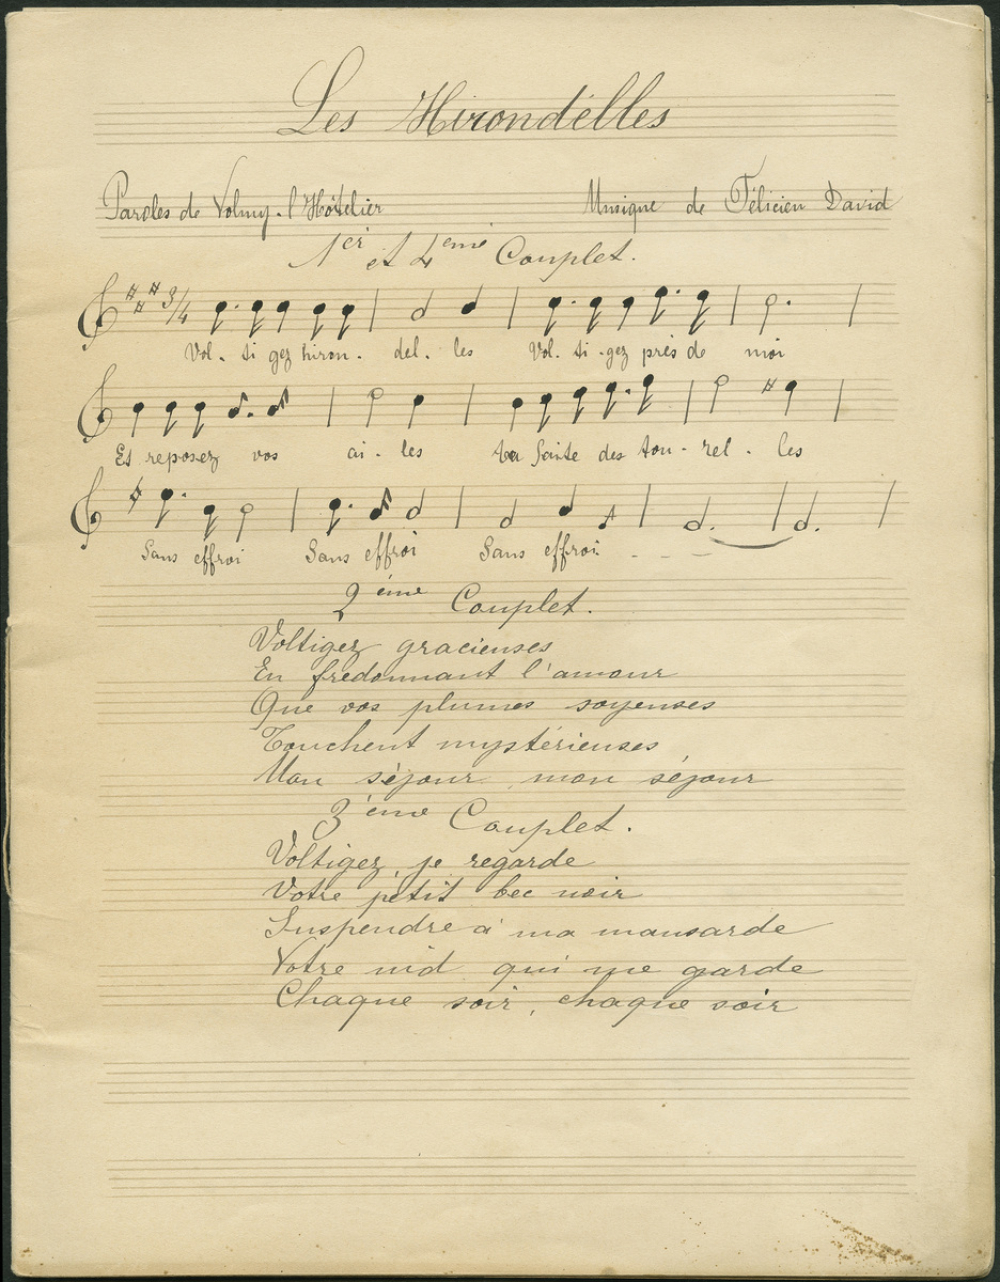 Les Hirondelles
Paroles de Volny-l'Hôtelier Musique de Félicien David
1er et 4eme Couplet.
3/4
Vol- ti gez hiron- del- les Vol- ti-gez près de moi
Et reposez vos ai-les faite des tou-rel-les
Sans effroi Sans effroi Sans effroi
2eme Couplet.
Voltigez gracieuses
En fredonnant l'amour
Que vos plumes soyeuses
Touchent mystérieuses
Mon séjour mon séjour
3ème Couplet.
Voltigez, je regarde
Votre petit bec noir
Suspendre à ma mansarde
Votre nid qui me garde
Chaque soir, chaque soir